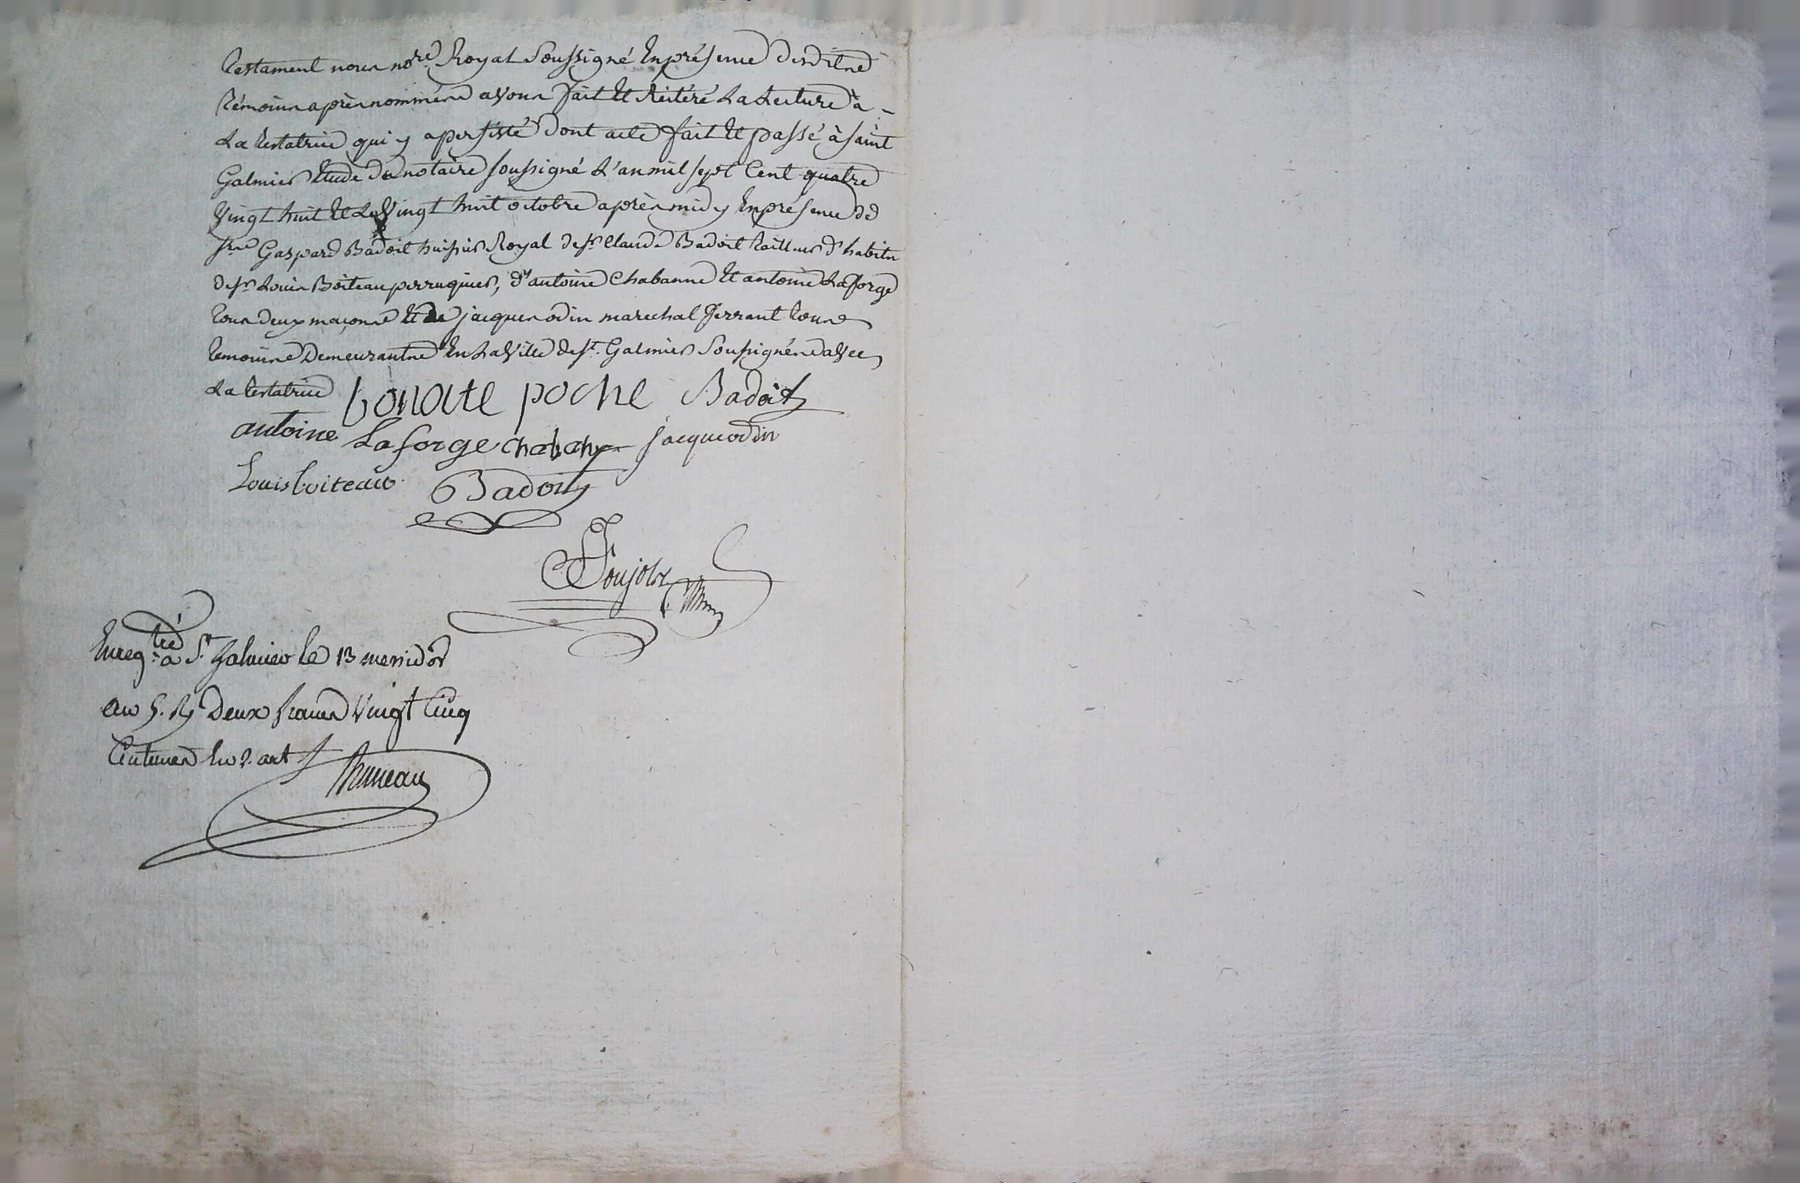 testament nous no.re Royal soussigné En présence desdits
témoins après nommés avons fait et Réitéré La Lecture à -
La testatrice qui y a persisté dont acte fait et passé à saint
Galmier Etude du notaire soussigné L'an mil sept Cent quatre
Vingt huit et Le Vingt huit octobre après midy En présence de
Sr Gaspard Badoit huissier Royal de sr Claude Badoit tailleur d'habits
de sr Louis Boiteau perruquier, d'antoine Chabanne Et antoine Laforge
tous deux maçons Et de jacques odin marechal ferrant tous
temoins Demeurants En La Ville de st. Galmier Soussignés avec
La testatrice bonate poche Badoit
antoine Laforge chabane jacque odin
Louis boiteau Badoit
Enreg.tré a St galmier le 13 messidor
an 5. R Deux francs Vingt Cinq
Centimes